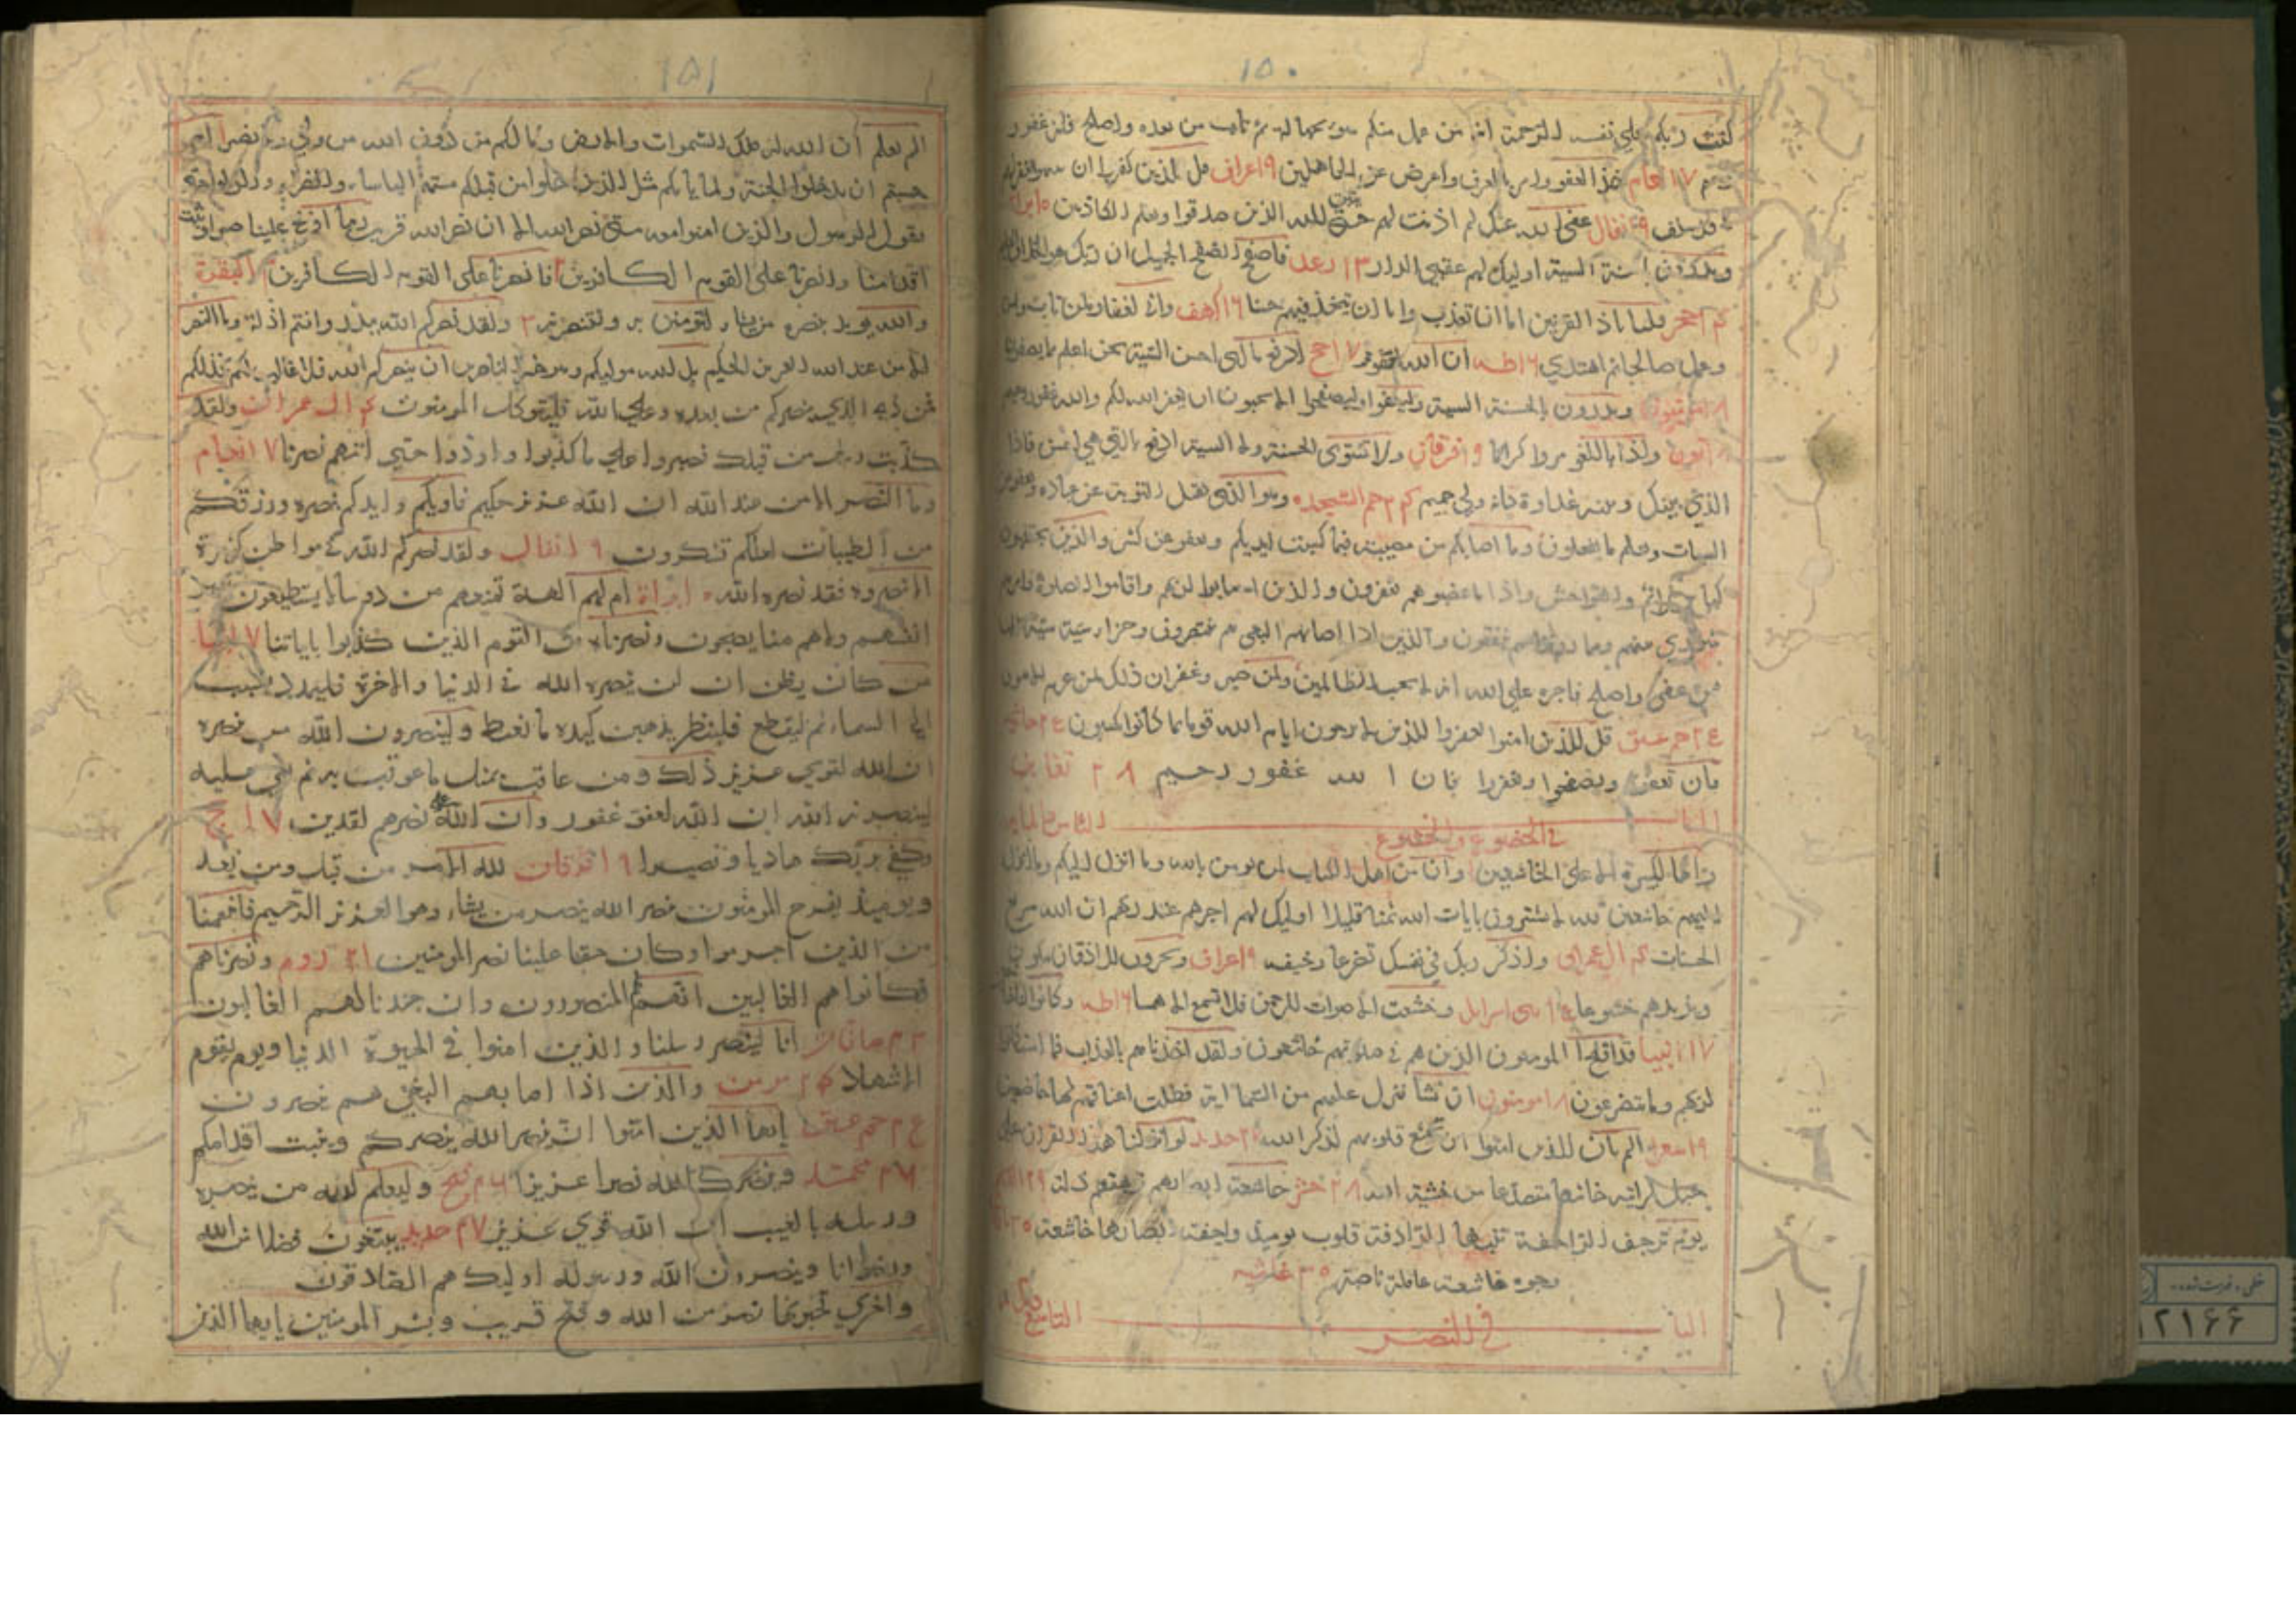 ١٥٠
كتب ربكم علي نفسه الرحمة انه من عمل منكم سوء بجهالة ثم تاب من بعده واصلح فانه غفور
رحيم ٧ انعام خذ العفو وامر بالعرف واعرض عن الجاهلين ٩ اعراف قل للذين كفروا ان ينتهوا يغفر لهم
ما قد سلف ٩ انفال عفي الله عنك لم اذنت لهم حتي يتبين لك الذين صدقوا وتعلم الكاذبين
ويدرؤن بالحسنة السيئة اوليك لهم عقبي الدار ١٣ رعد فاصفح الصفح الجميل ان ربك هو الخلاق
حجر قلنا ياذا القرنين اما ان تعذب واما ان تتخذ فيهم حسنا ١٦ كهف واني لغفار لمن تاب وامن
وعمل صالحا ثم اهتدي ١٦ طه ان الله لعفو غفور ١٧ حج ادفع بالتي احسن السيئة نحن اعلم بما يصفون
١٨ مؤمنون ويدرون بالحسنة السيئة وليعفوا وليصفحوا الا تحبون ان يغفر الله لكم والله غفور رحيم
واذا باللغو مروا كراما ١٩ فرقان ولا تستوي الحسنة ولا السيئة ادفع بالتي هي احسن فاذا
الذي بينك وبينه عداوة كانه ولي حميم حم السجده وهو الذي يقبل التوبة عن عباده ويعفو عن
السيات ويعلم ما يفعلون وما اصابكم من مصيبة فبما كسبت ايديكم ويعفو عن كثير والذين يجتنبون
كباير الاثم والفواحش واذا ما غضبوا هم يغفرون والذين استجابوا لربهم واقاموا الصلوة وامرهم
شوري بينهم ومما رزقناهم ينفقون والذين اذا اصابهم البغي هم ينتصرون وجزاء سيئة سيئة مثلها
فمن عفي واصلح فاجره علي الله انه لا يحب الظالمين ولمن صبر وغفر ان ذلك لمن عزم الامور
حم عسق قل للذين امنوا يغفروا للذين لا يرجون ايام الله قوما بما كانوا يكسبون جاثيه
وان تعفوا وتصفحوا وتغفروا فان الله غفور رحيم ٢٨ تغابن
الباب الثامن
في الخضوع والخشوع
وانها لكبيرة الا علي الخاشعين وان من اهل الكتاب لمن يومن بالله وما انزل اليكم وما انزل
اليهم خاشعين لله لا يشترون بايات الله ثمنا قليلا اوليك لهم اجرهم عند ربهم ان الله سريع
الحساب ال عمران واذكر ربك في نفسك تضرعا وخيفه ٩ اعراف ويخرون للاذقان يبكون
ويزيدهم خشوعا ١٥ بني اسرايل وخشعت الاصوات للرحمن فلا تسمع الا همسا ١٦ طه وكانوا لنا
١٧ انبيا قد افلح المومنون الذين هم في صلوتهم خاشعون ولقد اخذناهم بالعذاب فما استكانوا
لربهم وما يتضرعون ١٨ مومنون ان نشا ننزل عليهم من السما اية فظلت اعناقهم لها خاضعين
١٩ شعرا الم يان للذين امنوا ان تخشع قلوبهم لذكر الله حديد لو انزلنا هذا القران علي
جبل لرايته خاشعا متصدعا من خشية الله ٢٨ حشر خاشعة ابصارهم ترهقهم ذلة ٢٩ القلم
يوم ترجف الراجفة تتبعها الرادفة قلوب يوميذ واجفة ابصارها خاشعة
وجوه خاشعة عاملة ناصبة ٣٠ غاشيه
الباب التاسع
في النصر
١٥١
الم تعلم ان الله له ملك السموات والارض وما لكم من دون الله من ولي ولا نصير ام
حسبتم ان تدخلوا الجنة ولما ياتكم مثل الذين خلوا من قبلكم مستهم الباساء والضراء وزلزلوا حتي
يقول الرسول والذين امنوا معه متي نصر الله الا ان نصر الله قريب ربنا افرغ علينا صبرا وثبت
اقدامنا وانصرنا علي القوم الكافرين فانصرنا علي القوم الكافرين البقرة
والله يويد بنصره من يشاء لتومنن به ولتنصرنه ٣ ولقد نصركم الله ببدر وانتم اذلة وما النصر
الا من عند الله العزيز الحكيم بل الله موليكم وهو خير الناصرين ان ينصركم الله فلا غالب لكم وان يخذلكم
فمن ذي الذي ينصركم من بعده وعلي الله فليتوكل المومنون ال عمران ولقد
كذبت رسل من قبلك فصبروا علي ما كذبوا واوذوا حتي اتيهم نصرنا ٧ انعام
وما النصر الا من عند الله ان الله عزيز حكيم فاويكم وايدكم بنصره ورزقكم
من الطيبات لعلكم تشكرون ٩ انفال ولقد نصركم الله في مواطن كثيرة
الا تنصروه فقد نصره الله براة ام لهم الهة تمنعهم من دوننا لا يستطيعون نصر
انفسهم ولا هم منا يصحبون ونصرناه من القوم الذين كذبوا باياتنا ١٧ انبيا
من كان يظن ان لن ينصره الله في الدنيا والاخرة فليمدد بسبب
الي السماء ثم ليقطع فلينظر هل يذهبن كيده ما يغيظ ولينصرون الله من نصره
ان الله لقوي عزيز ذلك ومن عاقب بمثل ما عوقب به ثم بغي عليه
لينصرنه الله ان الله لعفو غفور وان الله علي نصرهم لقدير ١٧ حج
وكفي بربك هاديا ونصيرا ١٩ فرقان لله الامر من قبل ومن بعد
ويوميذ يفرح المومنون بنصر الله ينصر من يشاء وهو العزيز الرحيم فانتقمنا
من الذين اجرموا وكان حقا علينا نصر المومنين ٢١ روم ونصرناهم
فكانوا هم الغالبين انهم لهم المنصورون وان جندنا لهم الغالبون
٢٣ صافات انا لننصر رسلنا والذين امنوا في الحيوة الدنيا ويوم يقوم
الاشهاد ٢٤ مومن والذين اذا اصابهم البغي هم ينصرون
حم عسق يا ايها الذين امنوا ان تنصروا الله ينصركم ويثبت اقدامكم
٢٦ محمد وينصرك الله نصرا عزيزا ٢٦ فتح وليعلم الله من ينصره
ورسله بالغيب ان الله قوي عزيز ٢٧ حديد يبتغون فضلا من الله
ورضوانا وينصرون الله ورسوله اوليك هم الصادقون
واخري تحبونها نصر من الله وفتح قريب وبشر المومنين يايها الذين
١٢١٦٦